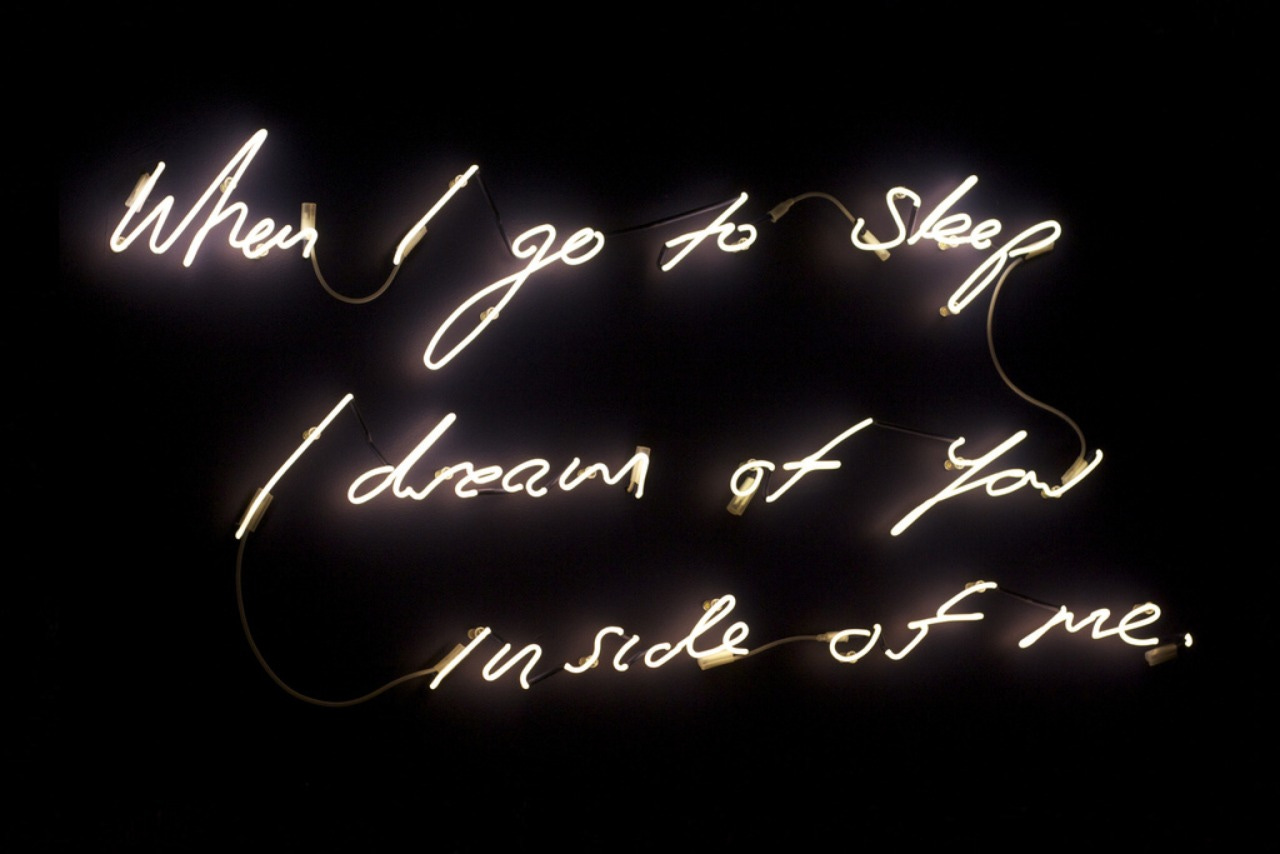 When I go to Sleep
I dream of You
inside of me.